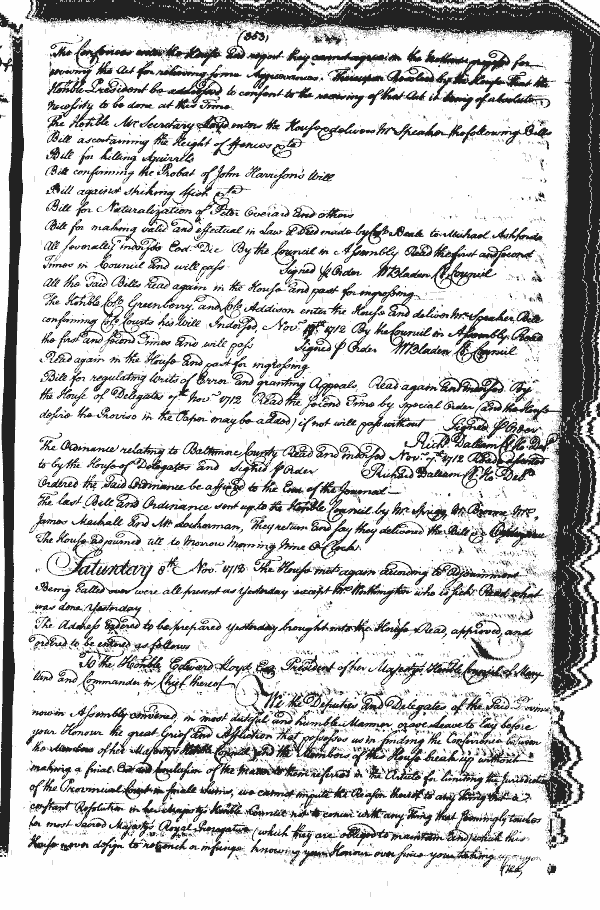 (353)
The Conferees enter the House and report they cannot agree on the Methods proposed for
reviving the Act for relieving some Aggrievances. Thereupon Resolved by the House that the
Honble President be addressed to consent to the reviving of that Act it being of absolute
necessity to be done at this Time.
The Honble Mr Secretary Lloyd enters the House & delivers Mr Speaker the following Bills
Bill ascertaining the Height of Fences &ca
Bill for killing Squirrels
Bill confirming the Probat of John Harrison's Will
Bill against striking Fish &ca
Bill for Naturalization of Peter Overard and others
Bill for making valid and effectual in Law a Deed made by Beale to Michael Ashford
All severally indorsed Eod. Die By the Council in Assembly Read the first and second
Times in Council and will pass Signed p Order W Bladen Cl Council
All the said Bills Read again in the House and past for ingrossing
The Honble Colo Greenberry and Colo Addison enter the House and deliver Mr Speaker Bill
confirming his Will Indorsed, Novr 1712 By the Council in Assembly Read
the first and second Times and will pass Signed p Order W Bladen Cl Council
Read again in the House and past for ingrossing
Bill for regulating Writs of Error and granting Appeals Read again and indorsed By
the House of Delegates 7th Novr 1712 Read the second Time by Special Order (and the House
desire the Proviso in the Paper may be added) if not will pass without Signed p Order
Richd Dallam Cl Ho Del
The Ordinance relating to Baltimore County Read and indorsed Novr 7th 1712 Read Assented
to by the House of Delegates and Signed p Order Richard Dallam Cl Ho Del
Ordered the said Ordinance be affixed to the End of the Journal
The last Bill and Ordinance sent up to the Honble Council by Mr Sprigg, Mr Browne, Mr
James Mashall and Mr Dockerman, They return and say they delivered the Bill &
The House adjourned till to Morrow Morning Nine O'Clock.
Saturday 8th Nov. 1712 The House met again according to Adjournment
Being called over were all present as yesterday except Mr Worthington who is sick Read what
was done Yesterday
The Address ordered to be prepared yesterday brought into the House Read, approved, and
ordered to be entered as follows
To the Honble Edward Lloyd Esq. President of her Majestys Honble Council of Mary
land and Commander in Chief thereof
We the Deputies and Delegates of the said Province
now in Assembly convened, in most dutifull and humble Manner crave leave to lay before
your Honour the great Grief and Affliction that possesses us in finding the Conference between
the Members of her Majestys Honble Council and the Members of this House break up without
making a final End and conclusion of the matter to them referred in the Article for limiting the Jurisdiction
of the Provincial Court in small Sums, we cannot impute the Reason thereof to any thing but a
constant Resolution in her Majestys Honble Council not to concur with any Thing that seemingly touches
her most Sacred Majestys Royal Prerogative (which they are obliged to maintain and) which this
House never design to retrench or infringe knowing your Honour ever since your taking